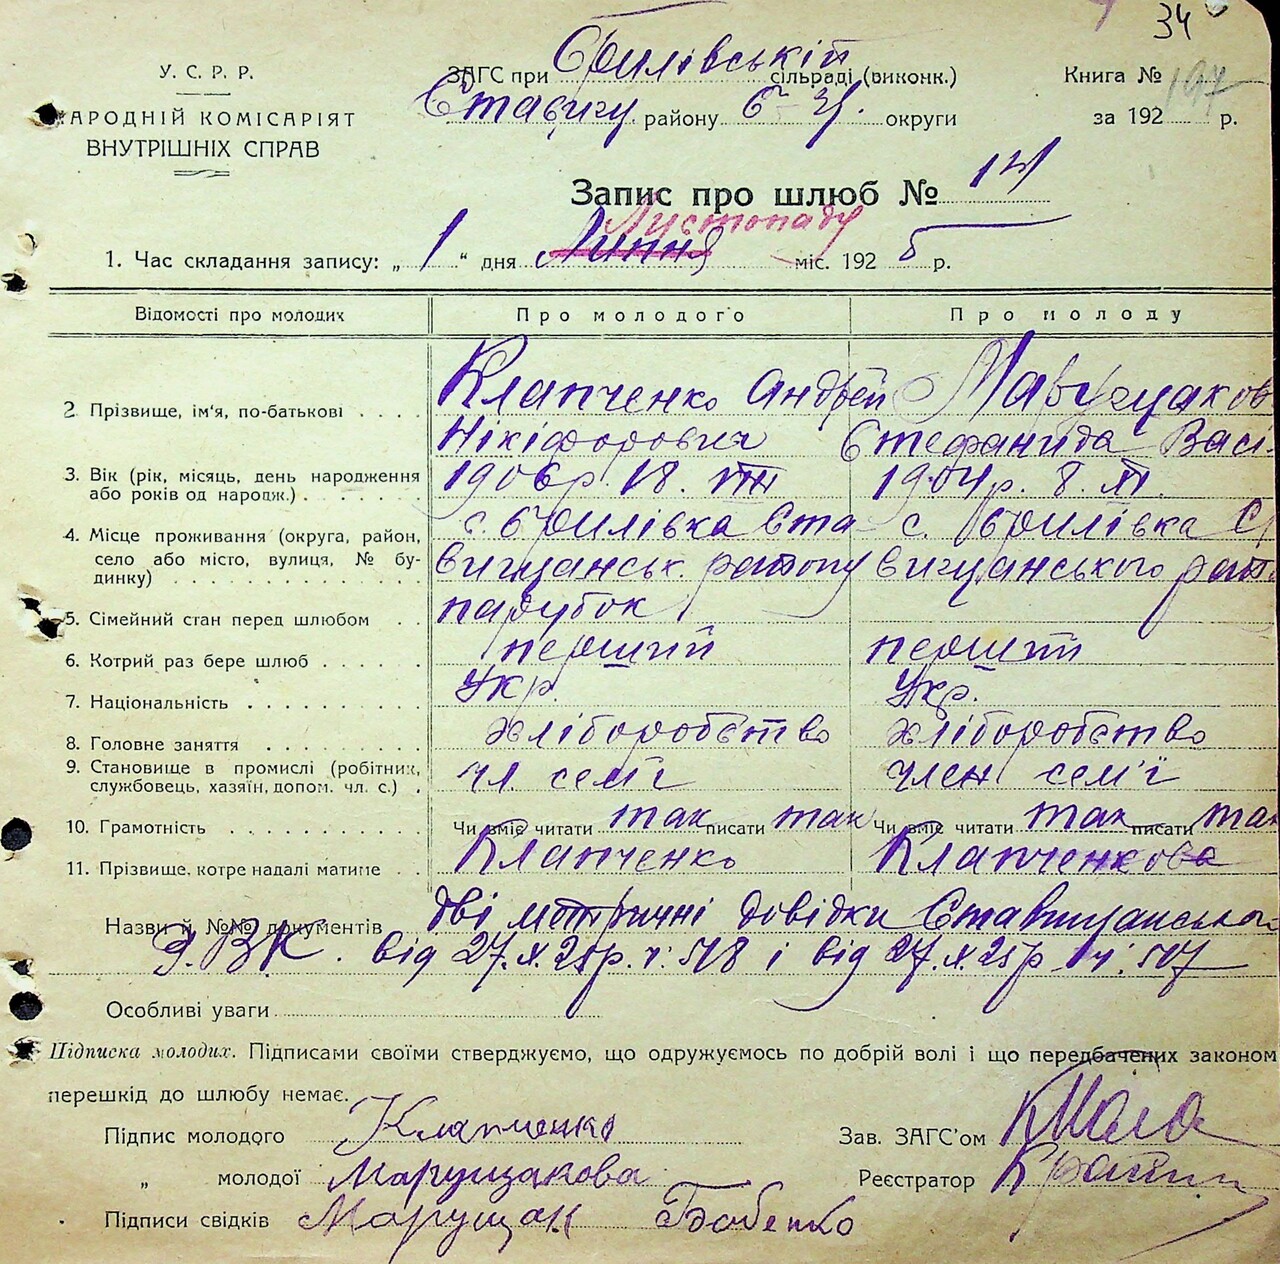 34
У. С. Р. Р.
НАРОДНІЙ КОМІСАРІЯТ
ВНУТРІШНІХ СПРАВ
ЗАГС при Брилівській сільраді (виконк.)
Ставищ. району Б-Ц. округи
Книга № 197
за 192 р.
Запис про шлюб № 14
Листопаду
1. Час складання запису: „ 1 " дня Липня міс. 192 5 р.
Відомості про молодих
Про молодого
Про молоду
2. Прізвище, ім'я, по-батькові . . . .
Клапченко Андрей
Нікіфорович
Марущаков
Стефанида Васі-
3. Вік (рік, місяць, день народження
або років од народж.) . . . . . . .
1906 р. 18. VIII
1904 р. 8. XI.
4. Місце проживання (округа, район,
село або місто, вулиця, № бу-
динку) . . . . . . . . . . . . . .
с. Брилівка Ста-
вищанськ. району
с. Брилівка Ст
вищанського райо
5. Сімейний стан перед шлюбом . .
парубок
6. Котрий раз бере шлюб . . . . . .
перший
перший
7. Національність . . . . . . . . . .
Укр.
Укр.
8. Головне заняття . . . . . . . . .
хліборобство
хліборобство
9. Становище в промислі (робітник,
службовець, хазяїн, допом. чл. с.) .
чл. сем'ї
член сем'ї
10. Грамотність . . . . . . . . . . .
Чи вміє читати так писати так
Чи вміє читати так писати так
11. Прізвище, котре надалі матиме . .
Клапченко
Клапченкова
Назви й №№ документів дві метричні довідки Ставищанського
Р.В.К. від 27.X.25 р. ч. 518 і від 27.X.25 р ч. 517
Особливі уваги
Підписка молодих. Підписами своїми стверджуємо, що одружуємось по добрій волі і що передбачених законом
перешкід до шлюбу немає.
Підпис молодого Клапченко
Зав. ЗАГС'ом
„ молодої Марущакова
Реєстратор
Підписи свідків Марущак Бабенко